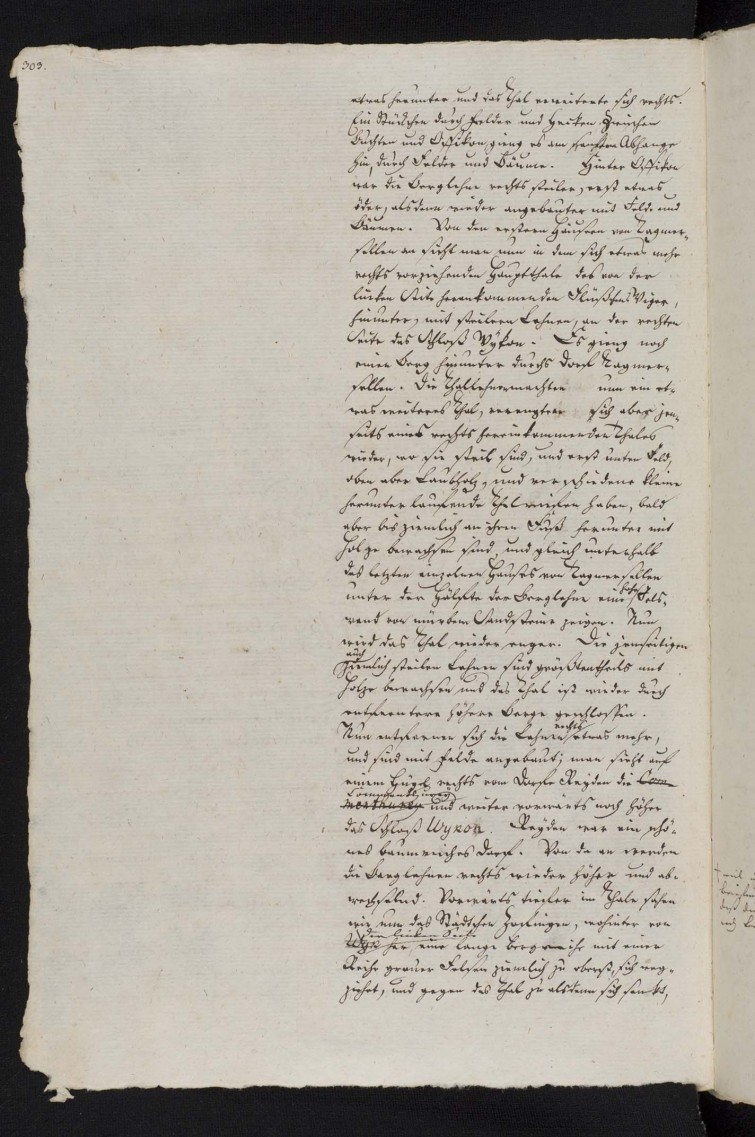 303.
etwas herunter und das Thal erweiterte sich rechts.
Ein Stückchen durch Felder und Hecken. Zwischen
Buchten und Ossikon, gieng es am sanften Abhange
hin, durch Felder und Bäume. Hinter Ossikon
war die Berglehne rechts steiler, erst etwas
öder, alsdenn wieder angebauter mit Feld und
Bäumen. Von den erstern Häusern von Dagmer-
sellen an sieht man nun in dem sich etwas mehr
rechts vorziehenden Hauptthale des von der
linken Seite herankommenden Flüßchens Viger,
hinunter, mit steilern Lehnen, an der rechten
Seite das Schloß Wykon. Es gieng noch
einen Berg hinunter durchs Dorf Dagmer-
sellen. Die Thallehnen machten nun ein et-
was weiteres Thal, verengten sich aber jen-
seits eines rechts hereinkommenden Thales
wieder, wo sie steil sind, und erst unten Feld,
oben aber Laubholz, und verschiedene kleine
herunter laufende Thel haben, bald
aber bis ziemlich an ihren Fuß herunter mit
Holze bewachsen sind, und gleich unterhalb
des letzten einzelnen Hauses von Dagmersellen
unter der Hälfte der Berglehne eine Fels-
wand von mürbem Sandsteine zeigen. Nun
wird das Thal wieder enger. Die jenseitigen
auch
ziemlich steilen Lehnen sind größtentheils mit
Holze bewachsen und das Thal ist wieder durch
entferntere höhere Berge geschlossen.
rechts
Nun entfernen sich die Lehnen etwas mehr,
und sind mit Felde angebaut; man sieht auf
einem Hügel rechts vom Dorfe Reyden die Com-
menthurey und weiter vorwärts noch höher
das Schloß Wykon. Reyden war ein schö-
nes baumreiches Dorf. Von da an werden
die Berglehnen rechts wieder höher und ab-
wechselnd. Vorwärts tiefer im Thale sahen
wir nun das Städtchen Zofingen, wohinter von
der linken Seite
her, eine lange Bergreihe mit einer
Reihe grauer Felsen ziemlich zu oberst, sich vor-
zieht, und gegen das Thal zu alsdenn sich senkt,